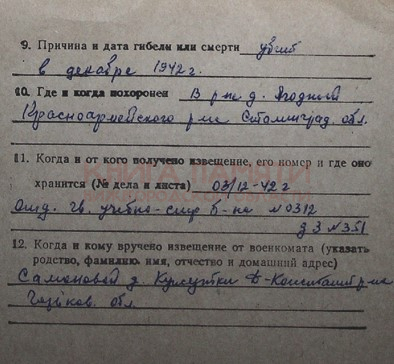 9. Причина и дата гибели или смерти убит
в декабре 1942 г.
10. Где и когда похоронен В р-не д. Ягодный
Красноармейского р-на Сталинград. обл.
11. Когда и от кого получено извещение, его номер и где оно
КНИГА ПАМЯТИ
хранится (№ дела и листа) 03/12-42 г
Отд. гв. учебно-стр б-на №0312
д 3 № 351
12. Когда и кому вручено извещение от военкомата (указать
родство, фамилию, имя, отчество и домашний адрес)
д. р-на
обл.